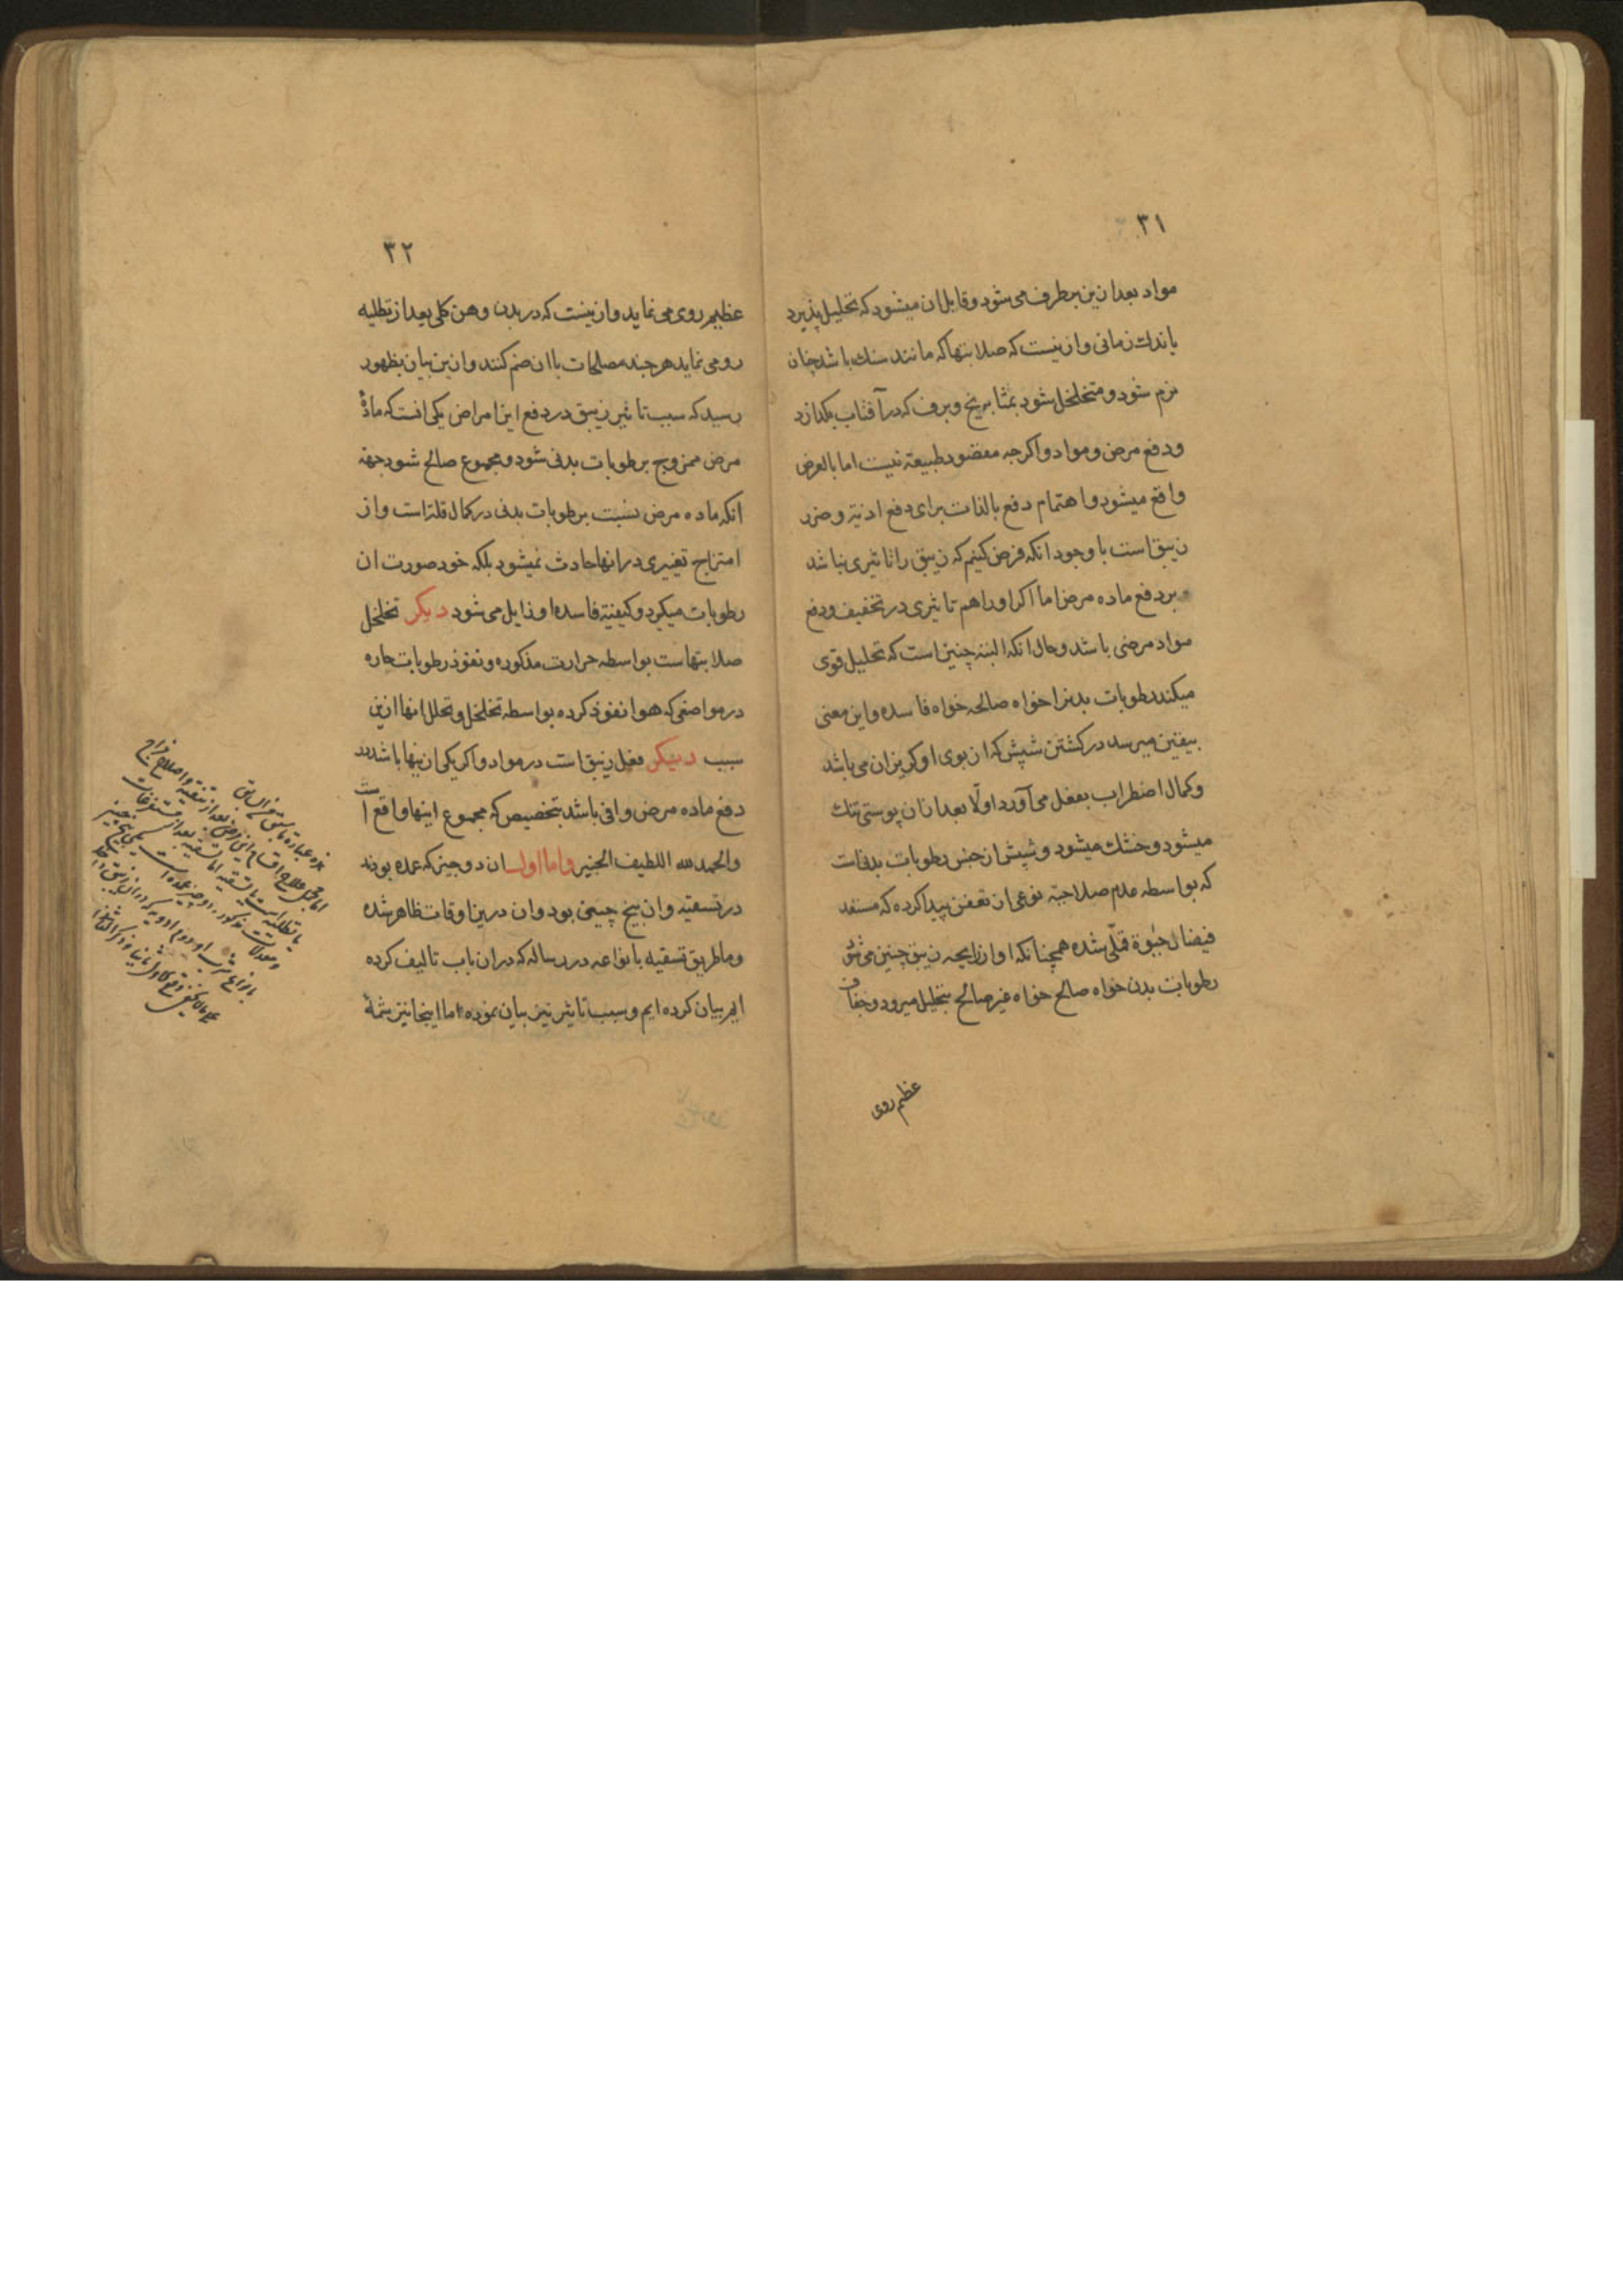 ۳۱
مواد بعد ازین برطرف می شود و قابل ان میشود که تحلیل پذیرد
باندك زمانی و ازینست که صلابتها که مانند سنك باشد چنان
نرم شود و متخلخل شود بمثابه یخ و برف که در آفتاب بکدازد
و دفع مرض و مواد و اکرچه مقصود طبیعة نیست اما بالعرض
واقع میشود و اهتمام دفع بالذات برای دفع اذیته و ضرر
زیبق است با وجود انکه فرض کنیم که زیبق را تاثیری نباشد
در دفع ماده مرض اما اکر او را هم تاثیری در تخفیف و دفع
مواد مرضی باشد و حال انکه البته چنین است که تحلیل قوی
میکند رطوبات بدنرا خواه صالحه خواه فاسده و این معنی
بیقین میرسد در کشتن شپش که از بوی او کریزان می باشد
و کمال اضطراب بفعل می آورد اولا بعد از ان پوستی تنك
میشود و خشك میشود و شپش از جنس رطوبات بدنی است
که بواسطه عدم صلاحیته نوعی از تعفن پیدا کرده که مستعد
فیضان حیوة قملی شده همچنانکه او از رایحه زیبق چنین می شود
رطوبات بدن خواه صالح خواه غیر صالح بتحلیل میرود و جفاف
عظیم روی
۳۲
عظیم روی می نماید و ازینست که در بدن وهن کلی بعد از تطلیه
رو می نماید هر چند مصلحات با ان ضم کنند و ازین بیان بظهور
رسید که سبب تاثیر زیبق در دفع این امراض یکی انست که مادهٔ
مرض ممزوج برطوبات بدنی شود و مجموع صالح شود جهة
انکه ماده مرض نسبت برطوبات بدنی در کمال قلة است و از
امتزاج تغییری در انها حادث نمیشود بلکه خود صورت ان
رطوبات میکیرد و کیفیة فاسده او زایل می شود دیکر تخلخل
صلابتهاست بواسطه حرارت مذکوره و نفوذ رطوبات حاره
در مواضعی که هوا نفوذ کرده بواسطه تخلخل و تحلل انها ازین
سبب دیکر فعل زیبق است در مواد و اکر یکی ازینها باشد در
دفع ماده مرض وافی باشد بتخصیص که مجموع اینها واقع است
والحمد لله اللطیف الخبیر واما اول ان دو چیز که عمده بودند
در تسقیه و ان بیخ چینی بود و ان درین اوقات ظاهر شده
و ما طریق تسقیه بانواعه در رساله که در ان باب تالیف کرده
ایم بیان کرده ایم و سبب تاثیر نیز بیان نموده اما اینجا نیز شمهٔ
اما مجمل علاج اقسام این مرض بعد از تنقیه و اصلاح مزاج
یا تطلیه است یا تسقیه اما تسقیه بعد از مستفرغات